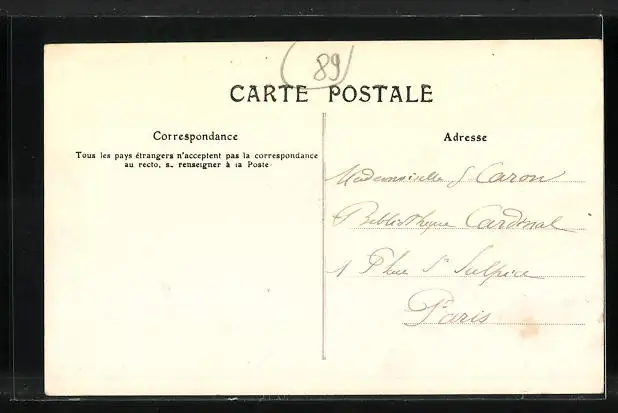 (89)
CARTE POSTALE
Correspondance
Tous les pays étrangers n'acceptent pas la correspondance
au recto, s. renseigner à la Poste
Adresse
Mademoiselle J Caron
Bibliothèque Cardinal
1 Place St Sulpice
Paris